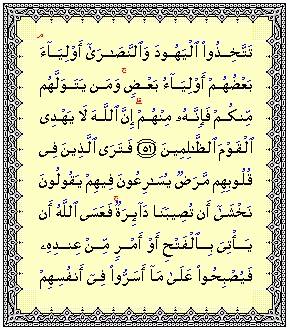 تَتَّخِذُوا۟ ٱلْيَهُودَ وَٱلنَّصَـٰرَىٰٓ أَوْلِيَآءَ ۘ
بَعْضُهُمْ أَوْلِيَآءُ بَعْضٍ ۚ وَمَن يَتَوَلَّهُم
مِّنكُمْ فَإِنَّهُۥ مِنْهُمْ ۗ إِنَّ ٱللَّهَ لَا يَهْدِى
ٱلْقَوْمَ ٱلظَّـٰلِمِينَ ﴿٥١﴾ فَتَرَى ٱلَّذِينَ فِى
قُلُوبِهِم مَّرَضٌ يُسَـٰرِعُونَ فِيهِمْ يَقُولُونَ
نَخْشَىٰٓ أَن تُصِيبَنَا دَآئِرَةٌ ۚ فَعَسَى ٱللَّهُ أَن
يَأْتِىَ بِٱلْفَتْحِ أَوْ أَمْرٍ مِّنْ عِندِهِۦ
فَيُصْبِحُوا۟ عَلَىٰ مَآ أَسَرُّوا۟ فِىٓ أَنفُسِهِمْ